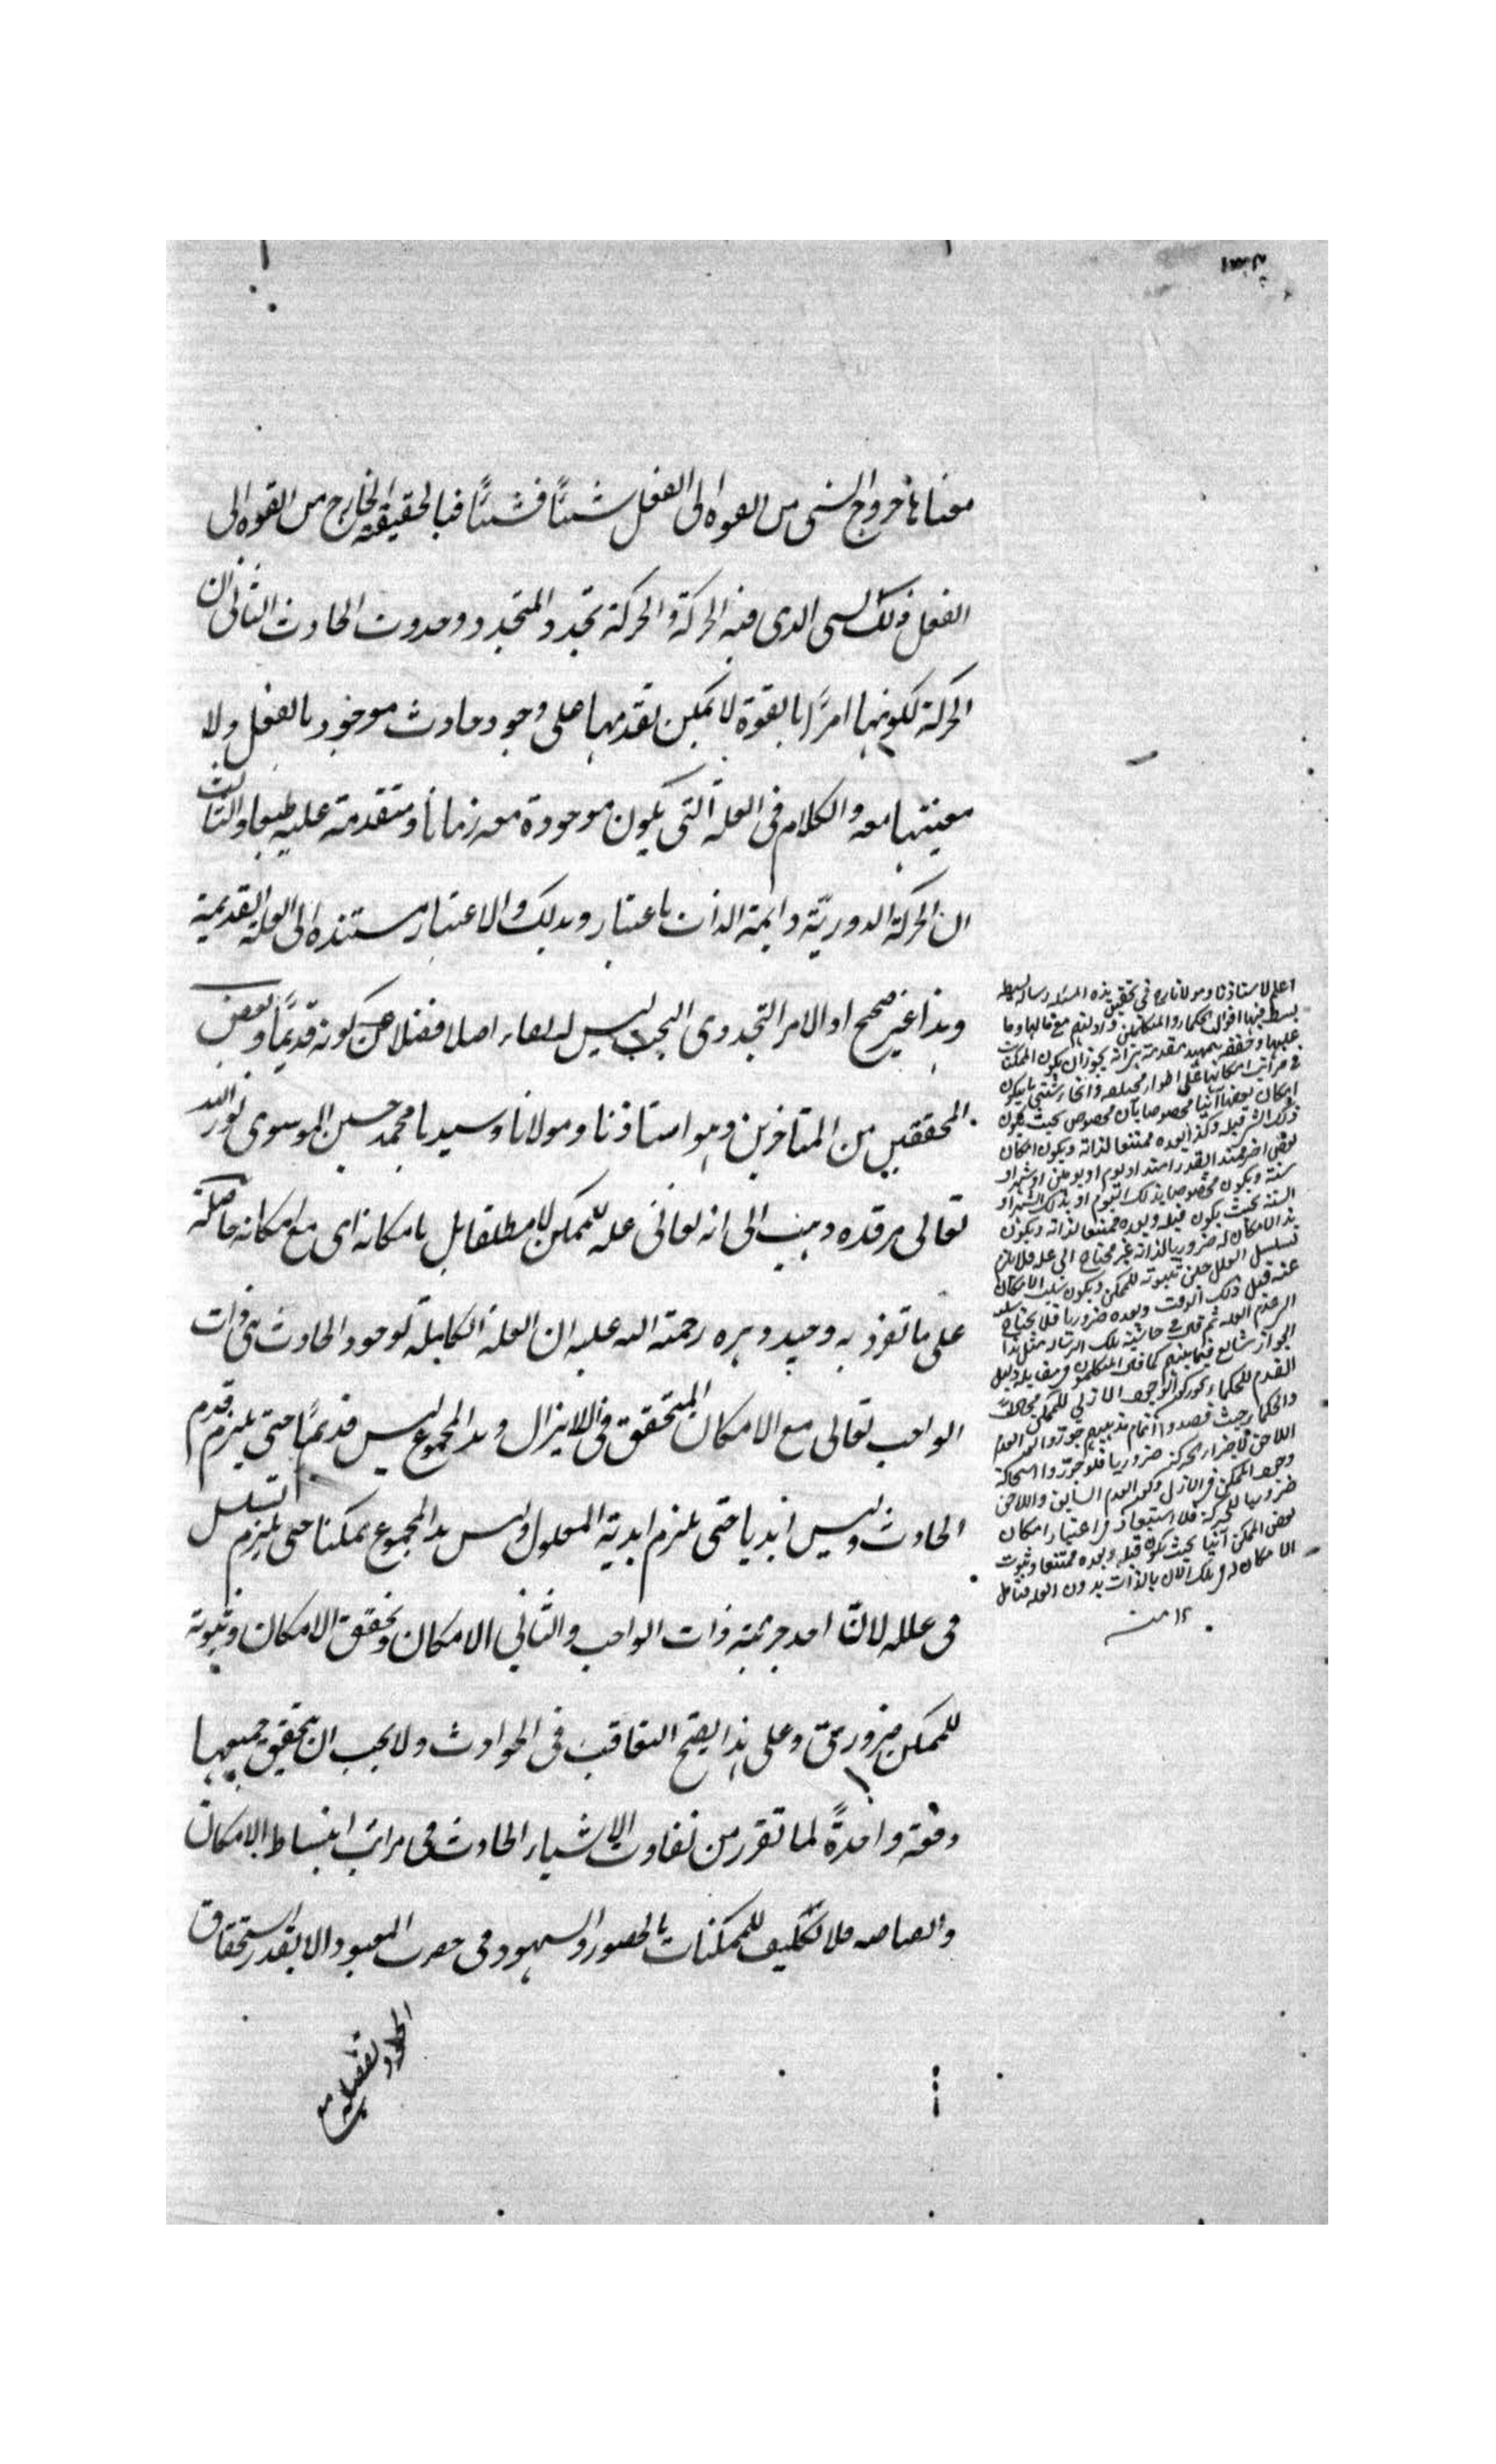 معناها خروج الشى من القوه الى الفعل شيئًا فشيئًا فبالحقيقة الخارج من القوه الى
الفعل ذلك الشى الذى فيه الحركة والحركة تجدد المتجدد وحدوث الحادث الثانى ان
الحركة لكونها امرًا بالقوة لا يمكن تقدمها على وجود حادث موجود بالفعل ولا
معيتها معه والكلام فى العلة التى يكون موجودة معه زمانا ومتقدمة عليه طبعا والثالث
ان الحركة الدوريّة دايمة الذات باعتبار وبذلك الاعتبار مستنده الى العلة القديمة
وهذا غير صحيح اذ الامر التجددى البحت ليس له بقاء اصلا فضلا عن كونه قديمًا وبعض
المحققين من المتاخرين وهو استاذنا ومولانا وسيدنا محمد حسين الموسوى نور الله
تعالى مرقده ذهب الى انه تعالى علة للممكن لا مطلقا بل بامكانه اى مع امكانه حاصلة
على ما تفرد به وحيد دهره رحمة الله عليه ان العلة الكاملة لوجود الحادث هى ذات
الواجب تعالى مع الامكان المتحقق فى اللايزال وهذا المجموع ليس قديمًا حتى يلزم قدم
الحادث وليس ابديا حتى يلزم ابدية المعلول وليس هذا المجموع ممكنا حتى يلزم التسلسل
فى علله لان احد جزئيه ذات الواجب والثانى الامكان وتحقق الامكان وثبوته
للممكن ضرورىّ وعلى هذا يصح التعاقب فى الحوادث ولا يجب ان يتحقق جميعها
دفعة واحدةً لما تقرر من تفاوت الاشياء الحادث فى مراتب انبساط الامكان
فلا تكليف للممكنات بالحضور والشهود فى حضرت المعبود الا بقدر استحقاق
اعلم لاستاذنا ومولانا ره فى تحقيق هذه المسئله رساله
بسط فيها اقوال الحكماء والمتكلمين وادلتهم مع مالها وما
عليها وحققه بتمهيد مقدمة هى انه يجوز ان يكون الممكنات
فى مراتب امكاناتها على اطوار مختلفه وانحاء شتى بان يكون
امكان بعضها آنيا مخصوصا بآن مخصوص بحيث يكون
ذلك الشى قبله وكذا بعده ممتنعا لذاته ويكون امكان
بعض اخر ممتدا بقدر امتداد يوم او يومين او شهر او
سنة ويكون مخصوصا بذلك اليوم او بذلك الشهر او
السنة بحيث يكون قبله وبعده ممتنعا لذاته ويكون
هذا الامكان له ضروريا لذاته غير محتاج الى علة فلا يلزم
تسلسل العلل حين ثبوته للممكن ويكون سلب الامكان
عنه قبل ذلك الوقت وبعده ضروريا فلا يحتاج
ثم قال فى حاشية تلك الرسالة مثل هذا
الجواز شائع فيما بينهم كما قال المتكلمون فى مقابلة دليل
القدم للحكماء
والحكماء حيث قصدوا اتمام مذهبهم جوزوا العدم
اللاحق لاجزاء الحركة ضروريا فلو جوزوا استحالة
وجود الممكن فى الازل وكون العدم السابق واللاحق
ضروريا للحركة فلا استبعاد فى اعتبار امكان
بعض الممكن آنيا بحيث يكون قبله وبعده ممتنعا وثبوت
الامكان له فى تلك الآن بالذات بدون العله فتامل
١٢ منه